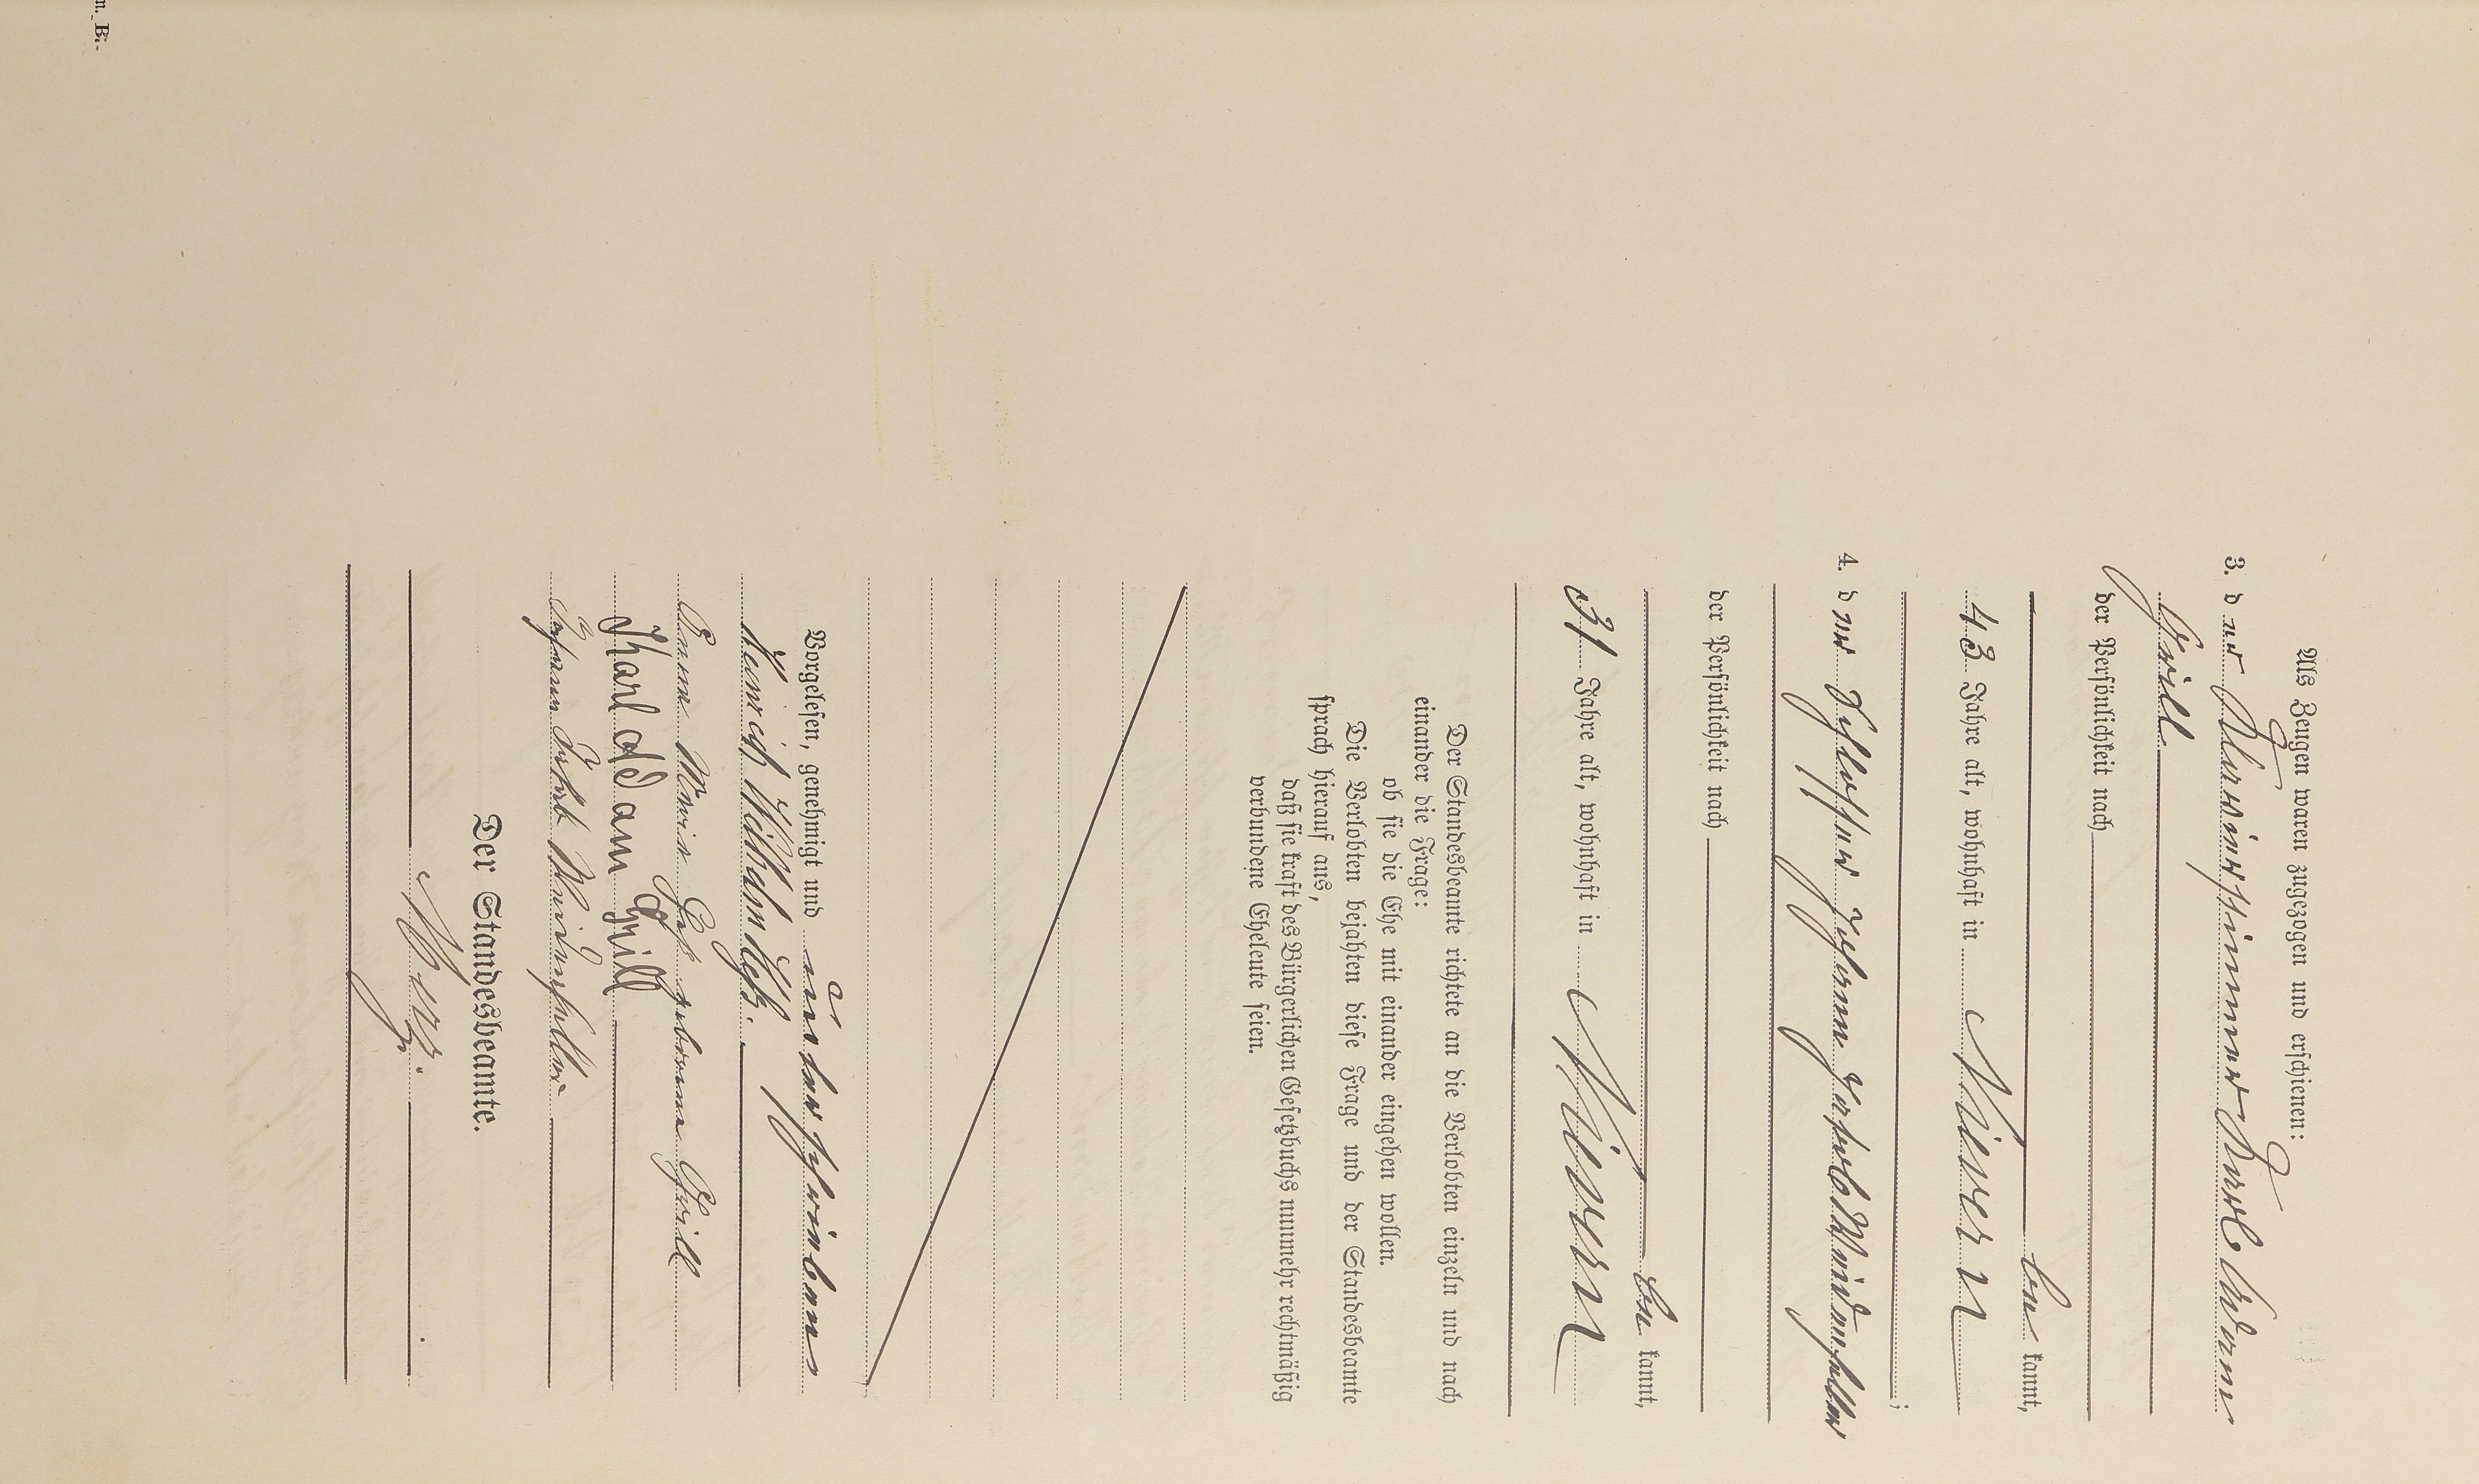 Als Zeugen waren zugezogen und erschienen:
3. der Karl Adam
Grill
der Persönlichkeit nach
be kannt,
43 Jahre alt, wohnhaft in
4. der Schlosser Johann Jakob
der Persönlichkeit nach
be kannt,
31 Jahre alt, wohnhaft in
Der Standesbeamte richtete an die Verlobten einzeln und nach
einander die Frage:
ob sie die Ehe mit einander eingehen wollen.
Die Verlobten bejahten diese Frage und der Standesbeamte
sprach hierauf aus,
daß sie kraft des Bürgerlichen Gesetzbuchs nunmehr rechtmäßig
verbundene Eheleute seien.
Vorgelesen, genehmigt und unterschrieben
Heinrich Heß.
Anna Maria Heß geborene Grill
Karl Adam Grill
Johann Jakob
Der Standesbeamte.